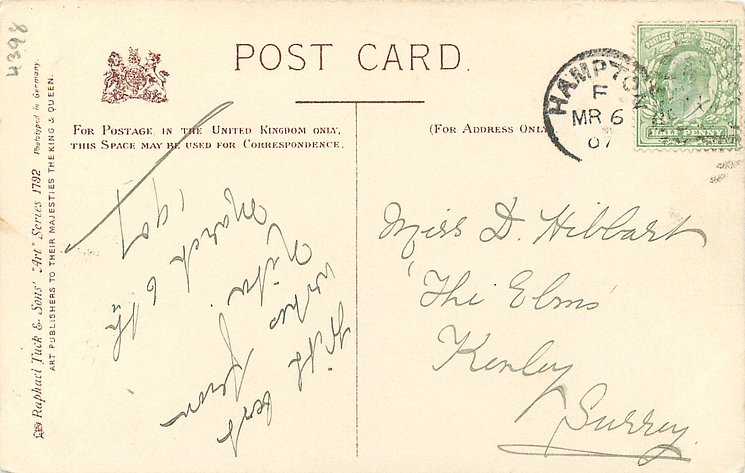 4398
POST CARD.
FOR POSTAGE IN THE UNITED KINGDOM ONLY,
THIS SPACE MAY BE USED FOR CORRESPONDENCE.
(FOR ADDRESS ONLY
HAMPTON
F
MR 6
07
POSTAGE
HALF PENNY
Raphael Tuck & Sons' "Art" Series 1782 Phototyped in Germany.
ART PUBLISHERS TO THEIR MAJESTIES THE KING & QUEEN.
With best
wishes from
March 6th
1907
Miss D. Hibbart
'The Elms'
Kenley
Surrey.